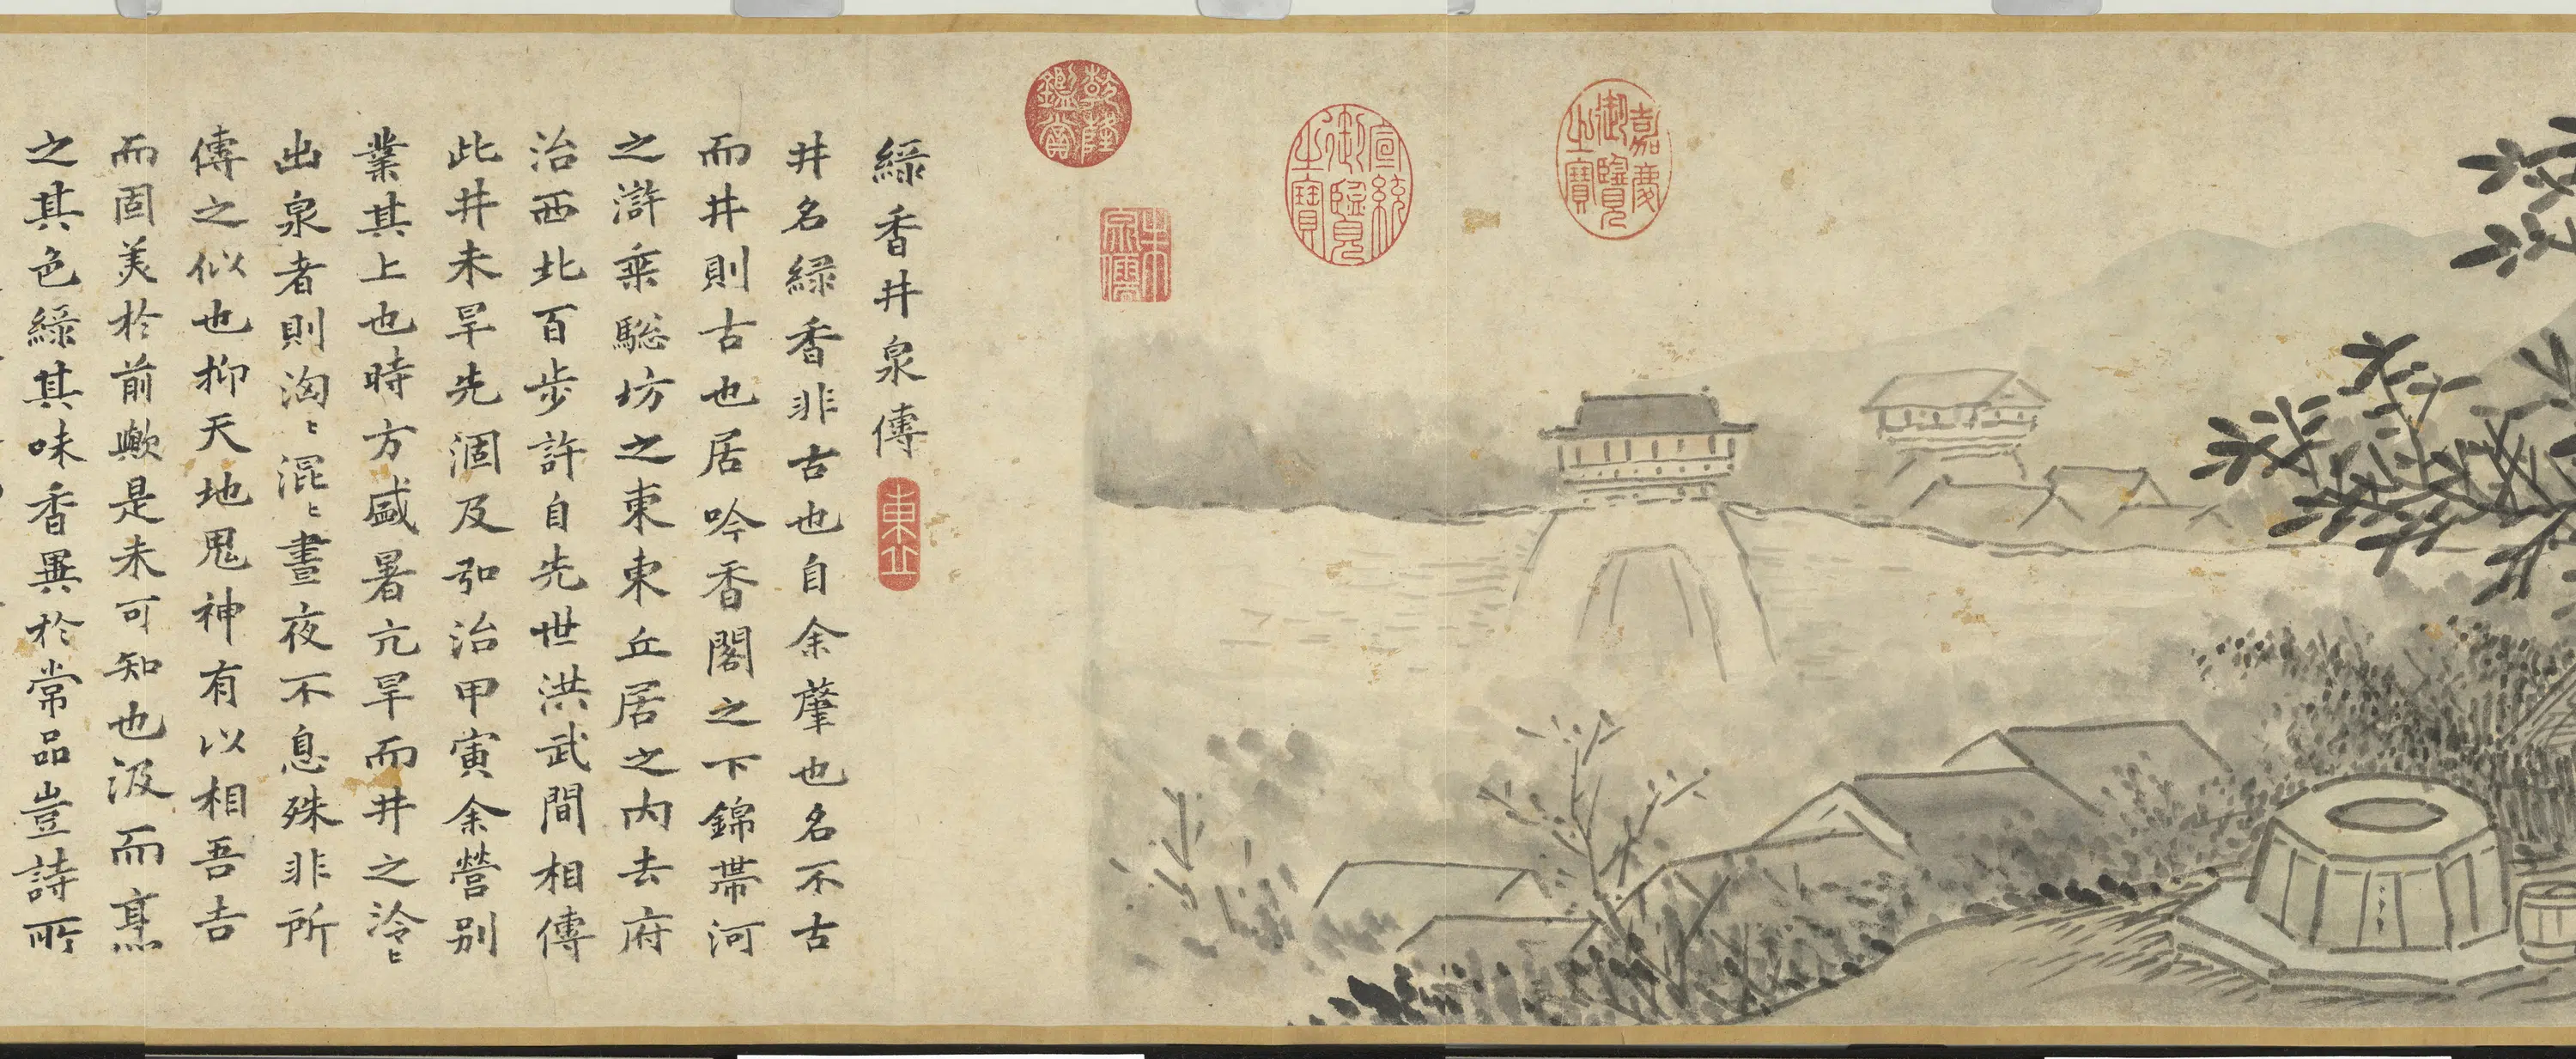 嘉慶御覽之寶
宣統御覽之寶
乾隆鑑賞
綠香井泉傳
東丘
井名綠香非古也自余肇也名不古
而井則古也居吟香閣之下錦帶河
之滸乘驄坊之東東丘居之內去府
治西北百步許自先世洪武間相傳
此井未旱先涸及弘治甲寅余營別
業其上也時方盛暑亢旱而井之泠〻
出泉者則洶〻混〻晝夜不息殊非所
傳之似也抑天地鬼神有以相吾吉
而固美於前歟是未可知也汲而烹
之其色綠其味香異於常品豈詩所